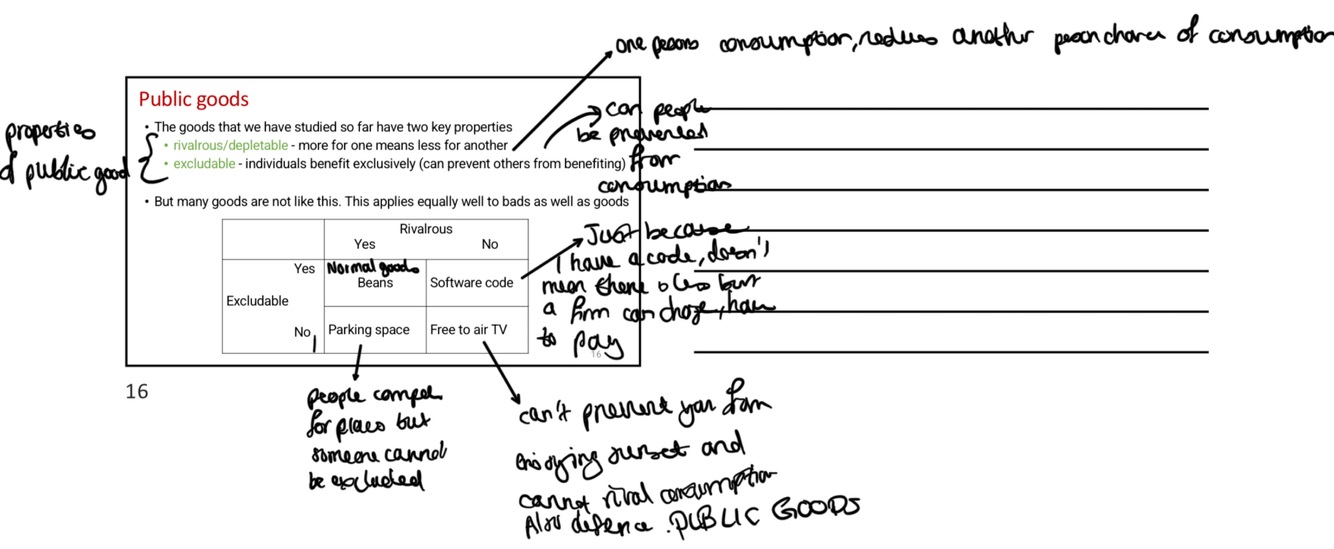 one persons consumption, reduces another person chance of consumption
Public goods
• The goods that we have studied so far have two key properties
• rivalrous/depletable - more for one means less for another
• excludable - individuals benefit exclusively (can prevent others from benefiting)
properties
of public good
can people
be prevented
from
consumption
• But many goods are not like this. This applies equally well to bads as well as goods
Rivalrous
Yes No
Yes Normal goods
Beans Software code
Excludable
No Parking space Free to air TV
Just because
I have a code, doesn't
mean there is less but
a firm can
to pay
16
16
people compete
for places but
someone cannot
be excluded
can't prevent you from
enjoying sunset and
cannot rival consumption
Also defence. PUBLIC GOODS